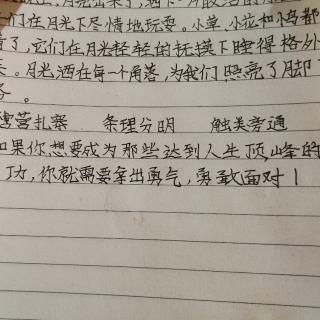 们在月光下尽情地玩耍。小草、小花和小鸟都
了,它们在月光轻轻的抚摸下睡得格外
。月光洒在每一个角落,为我们照亮了脚下
。
营扎寨 条理分明 触类旁通
如果你想要成为那些达到人生顶峰的
功,你就需要拿出勇气,勇敢面对!